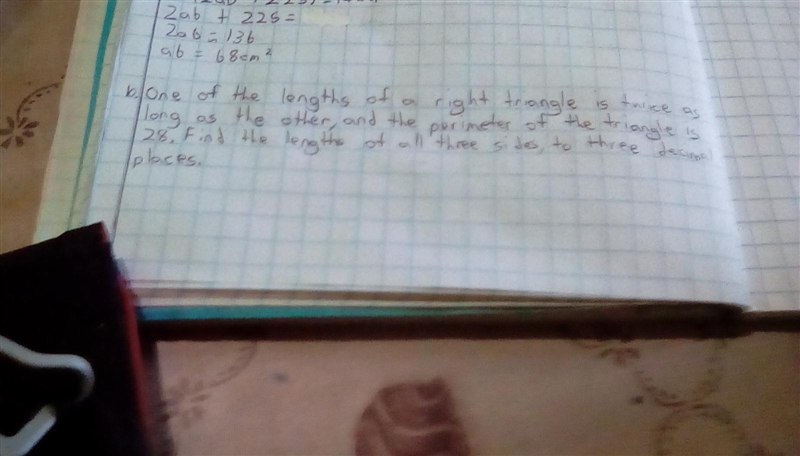 2ab + 225 =
2ab = 136
ab = 68cm²
b. One of the lengths of a right triangle is twice as
long as the other, and the perimeter of the triangle is
28. Find the lengths of all three sides, to three decimal
places.